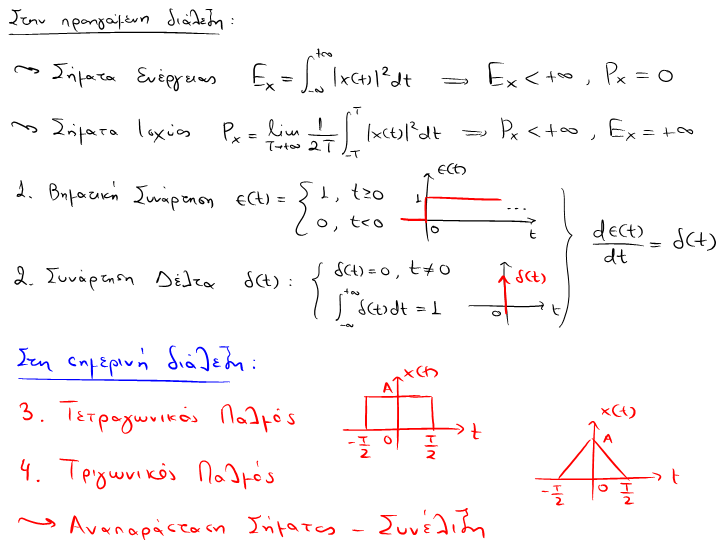 Στην προηγούμενη διάλεξη:
~> Σήματα Ενέργειας E_x = ∫_{-∞}^{+∞} |x(t)|² dt ⟹ E_x < +∞ , P_x = 0
~> Σήματα Ισχύος P_x = lim_{T→+∞} 1/2T ∫_{-T}^{T} |x(t)|² dt ⟹ P_x < +∞ , E_x = +∞
1. Βηματική Συνάρτηση ε(t) = { 1, t≥0
0, t<0
ε(t) 1 0 ... t
dε(t)/dt = δ(t)
2. Συνάρτηση Δέλτα δ(t): { δ(t) = 0, t ≠ 0
∫_{-∞}^{+∞} δ(t) dt = 1
δ(t) 0 t
Στη σημερινή διάλεξη:
3. Τετραγωνικός Παλμός
x(t) A -T/2 0 T/2 t
4. Τριγωνικός Παλμός
x(t) A -T/2 0 T/2 t
~> Αναπαράσταση Σήματος - Συνέλιξη